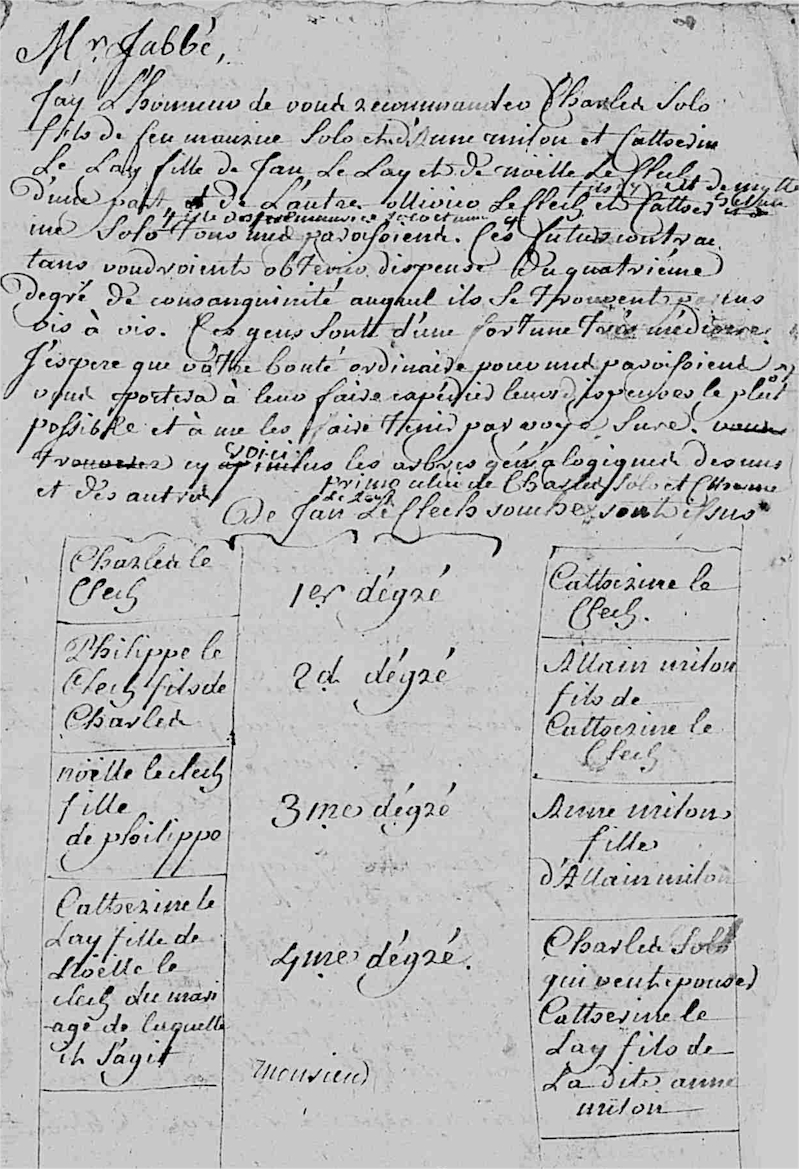 Mr. Jabbé,
J'ay L'honneur de vous recommander Charles Solo
fils de feu maurice Solo et d'Anne milon et Catherin
Le Lay fille de Jan Le Lay et de noëlle Le Clech
d'une part, et de L'autre ollivier Le Clech et Cather
ine Solo tous mes paroissiens. Ces futurs contrac
tans voudroient obtenir dispense du quatriéme
degré de consanguinité auquel ils se trouvent
vis à vis. Ces gens sont d'une fortune très médiocre.
J'espere que vôtre bonté ordinaire pour mes paroissiens
vous portera à leur faire expédier leurs dispenses le plutôt
possible et à me les faire tenir par voye sure. vous
trouverez cy voici les arbres généalogiques des uns
et des autres
primo celui de Charles Solo et Catherine
Le Lay
De Jan Le Clech souche sont issus
Charles le
Clech
1er dégré
Catherine le
Clech.
Philippe le
Clech fils de
Charles
2d dégré
Allain milon
fils de
Catherine le
Clech
noëlle le clech
fille
de philippe
3me dégré
Anne milon
fille
d'Allain milon
Catherine le
Lay fille de
Noëlle le
clech du mari
age de laquelle
il s'agit
4me dégré.
Charles Solo
qui veut epouser
Catherine le
Lay fils de
La dite anne
milon
Monsieur